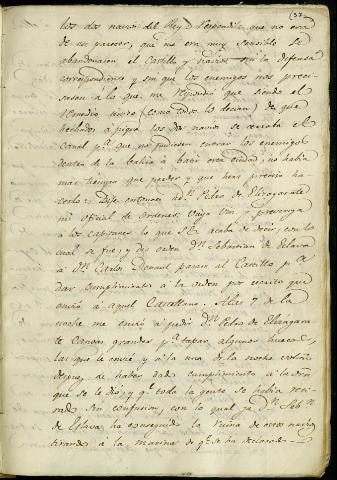 (37
los dos navios del Rey D. Responbile que no era
de su parecer, que me era muy sensible se
abandonasen el Castillo y navios sin la defensa
correspondiente y sin que los enemigos nos preci-
sasen á lo que me respondió que siendo el
remedio unico (como todos lo decian) de que
hechados á pique los dos navios se cerraba el
canal pª que no pudiesen entrar los enemigos
dentro de la bahia á batir esta ciudad, no habia
mas tiempo que perder y que hera preciso ha-
cerlo: Dije entonces á Dn. Pedro de Elizagarate
mi oficial de ordenes: Vaya Vm. y prevenga
á los capitanes lo que S.E. acaba de decir, con lo
cual se fue, y dió orden Dn. Sebastian de Eslava
á Dn. Carlos Desnaux pasara al Castillo pª
dar cumplimiento á la orden por escrito que
envió á aquel Castellano. Alas 7 de la
noche me envió á pedir Dn. Pedro de Elizagara-
te Canoas grandes pª tapar algunos huecos,
las que le envié y á la una de la noche volvió
despues de haber dado cumplimiento á la orn
que se le dió, y qe toda la gente se habia reti-
rado sin confusion, con lo qual ya Dn. Sebn.
de Eslava ha conseguido la ruina de estos navios
tirando á la marina de qe se ha declarado